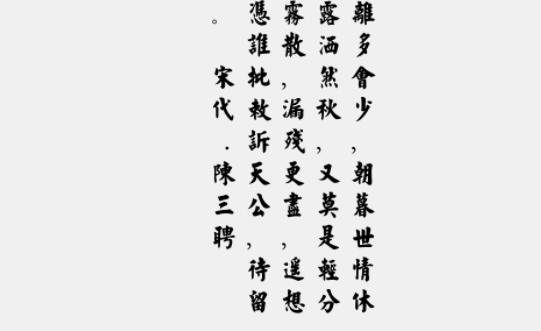 離多會少，朝暮世情休
露洒然秋，又莫是輕分
霧散，漏殘更盡，遥想
憑誰批敕訴天公，待留
。宋代．陳三聘